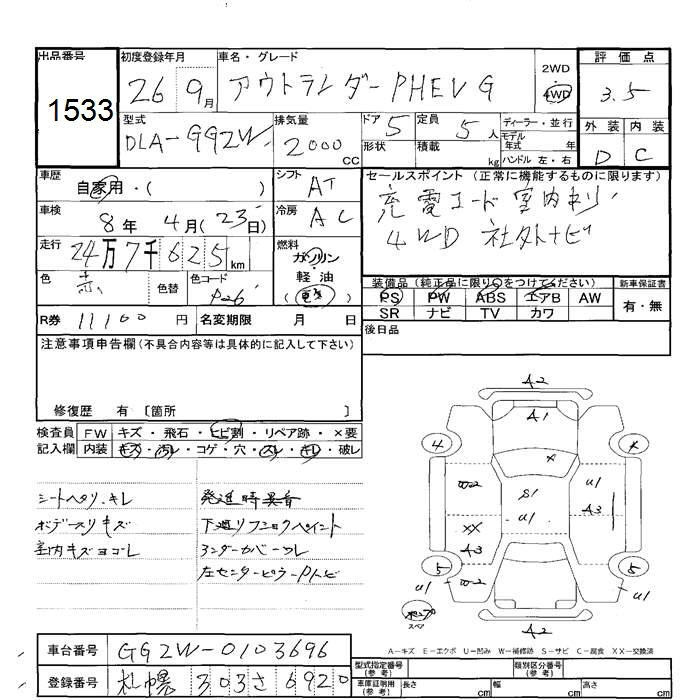 出品番号 1533
初度登録年月 26 9月
車名・グレード アウトランダーPHEV G
2WD 4WD
評価点 3.5
型式 DLA-GG2W
排気量 2000 CC
ドア 5
形状
定員 5人
積載 kg
ディーラー・並行
モデル年式 年
ハンドル 左・右
外装 内装
D C
車歴 自家用・( )
シフト AT
車検 8年 4月(23日)
冷房 AC
走行 24万7千625km
燃料 ガソリン
軽・油
(電気)
色 赤
色替
色コード P26
R券 11100円
名変期限 月 日
セールスポイント (正常に機能するものに限ります)
充電コード室内あり
4WD 社外ナビ
装備品(純正品に限り○をつけてください)
新車保証書
PS PW ABS エアB AW
有・無
SR ナビ TV カワ
後日品
注意事項申告欄(不具合内容等は具体的に記入して下さい)
修復歴 有 〔箇所 〕
検査員 FW キズ・飛石・ヒビ割・リペア跡・×要
記入欄 内装 キズ・汚レ・コゲ・穴・スレ・キレ・破レ
シートヘリ、キレ
発進時異音
ボデースリキズ
下廻リフニロクペイント
室内キズヨゴレ
アンダーカバーワレ
左センターピラーPトビ
A2
A1
4
×
×
W2
S1
U1
U1
A3
XX
A3
5
5
U1
W2
U1
ポンプ
スペア
A2
A−キズ E−エクボ U−凹み W−補修跡 S−サビ C−腐食 XX−交換済
車台番号 GG2W-0103696
登録番号 札幌 303 さ 6920
型式指定番号(参考)
類別区分番号(参考)
車庫証明寸法(参考) 長さ cm 幅 cm 高さ cm